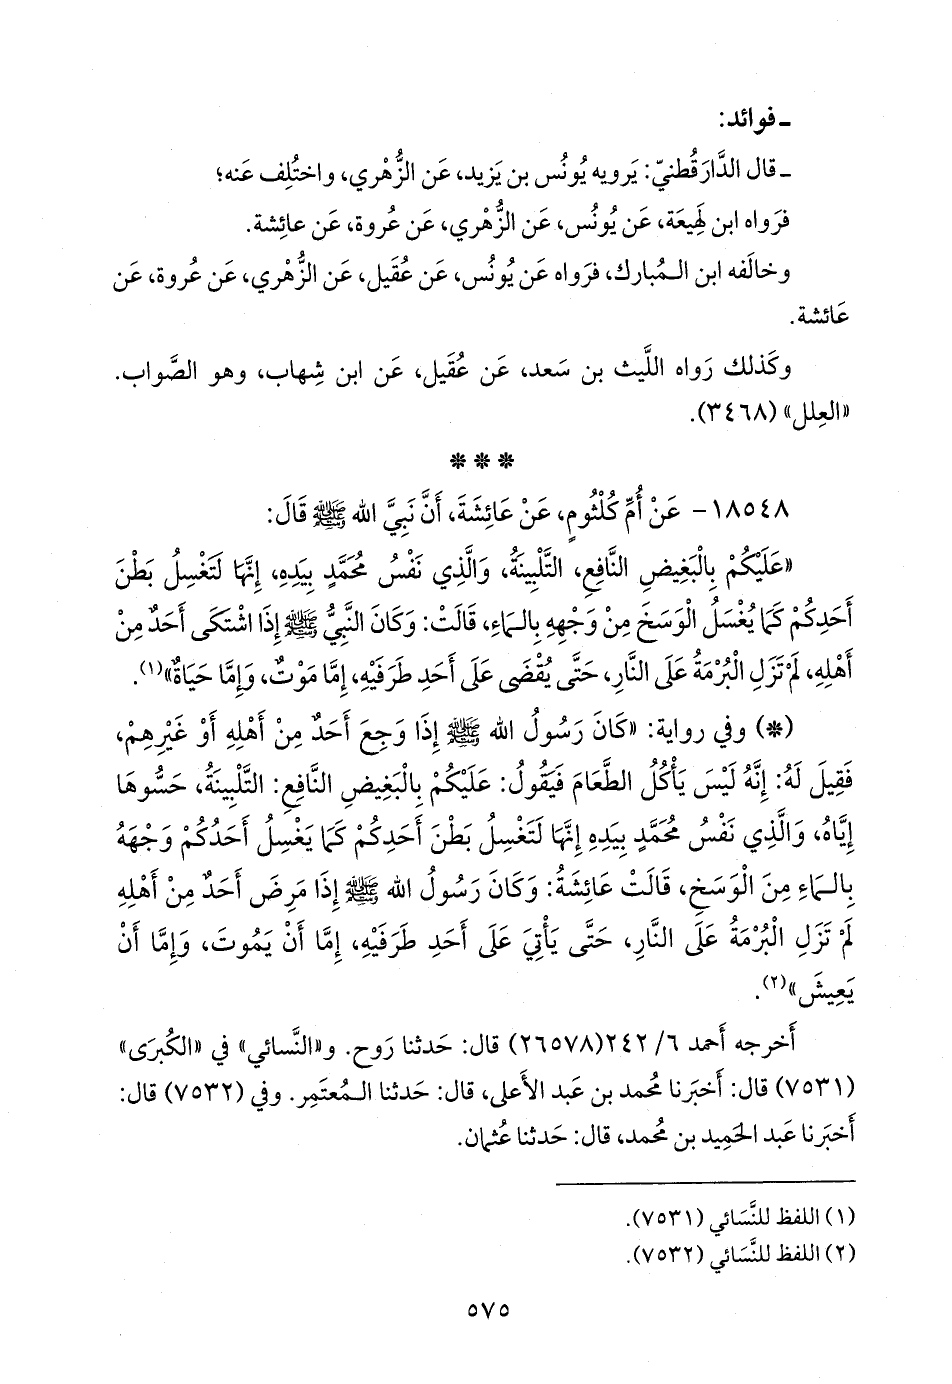 ـ فوائد:
ـ قال الدَّارَقُطنيّ: يَرويه يُونُس بن يَزيد، عَن الزُّهْري، واختُلِف عَنه؛
فرَواه ابن لَهِيعَة، عَن يُونُس، عَن الزُّهْري، عَن عُروة، عَن عائِشة.
وخالَفه ابن المُبارك، فرَواه عَن يُونُس، عَن عُقَيل، عَن الزُّهْري، عَن عُروة، عَن
عَائشة.
وكَذلك رَواه اللَّيث بن سَعد، عَن عُقَيل، عَن ابن شِهاب، وهو الصَّواب.
«العِلل» (٣٤٦٨).
* * *
١٨٥٤٨- عَنْ أُمِّ كُلْثُومٍ، عَنْ عَائِشَةَ، أَنَّ نَبِيَّ الله ﷺ قَالَ:
«عَلَيْكُمْ بِالْبَغِيضِ النَّافِعِ، التَّلْبِينَةُ، وَالَّذِي نَفْسُ مُحَمَّدٍ بِيَدِهِ، إِنَّهَا لَتَغْسِلُ بَطْنَ
أَحَدِكُمْ كَمَا يُغْسَلُ الْوَسَخَ مِنْ وَجْهِهِ بِالمَاءِ، قَالَتْ: وَكَانَ النَّبِيُّ ﷺ إِذَا اشْتَكَى أَحَدٌ مِنْ
أَهْلِهِ، لَمْ تَزَلِ الْبُرْمَةُ عَلَى النَّارِ، حَتَّى يُقْضَى عَلَى أَحَدِ طَرَفَيْهِ، إِمَّا مَوْتٌ، وَإِمَّا حَيَاةٌ»(١).
(*) وفي رواية: «كَانَ رَسُولُ الله ﷺ إِذَا وَجِعَ أَحَدٌ مِنْ أَهْلِهِ أَوْ غَيْرِهِمْ،
فَقِيلَ لَهُ: إِنَّهُ لَيْسَ يَأْكُلُ الطَّعَامَ فَيَقُولُ: عَلَيْكُمْ بِالْبَغِيضِ النَّافِعِ: التَّلْبِينَةُ، حَسُّوهَا
إِيَّاهُ، وَالَّذِي نَفْسُ مُحَمَّدٍ بِيَدِهِ إِنَّهَا لَتَغْسِلُ بَطْنَ أَحَدِكُمْ كَمَا يَغْسِلُ أَحَدُكُمْ وَجْهَهُ
بِالمَاءِ مِنَ الْوَسَخِ، قَالَتْ عَائِشَةُ: وَكَانَ رَسُولُ الله ﷺ إِذَا مَرِضَ أَحَدٌ مِنْ أَهْلِهِ
لَمْ تَزَلِ الْبُرْمَةُ عَلَى النَّارِ، حَتَّى يَأْتِيَ عَلَى أَحَدِ طَرَفَيْهِ، إِمَّا أَنْ يَمُوتَ، وَإِمَّا أَنْ
يَعِيشَ»(٢).
أَخرجه أَحمد ٦/ ٢٤٢(٢٦٥٧٨) قال: حَدثنا رَوح. و«النَّسائي» في «الكُبرَى»
(٧٥٣١) قال: أَخبَرنا مُحمد بن عَبد الأَعلى، قال: حَدثنا المُعتَمِر. وفي (٧٥٣٢) قال:
أَخبَرنا عَبد الحَمِيد بن مُحمد، قال: حَدثنا عُثمان.
(١) اللفظ للنَّسَائي (٧٥٣١).
(٢) اللفظ للنَّسَائي (٧٥٣٢).
٥٧٥